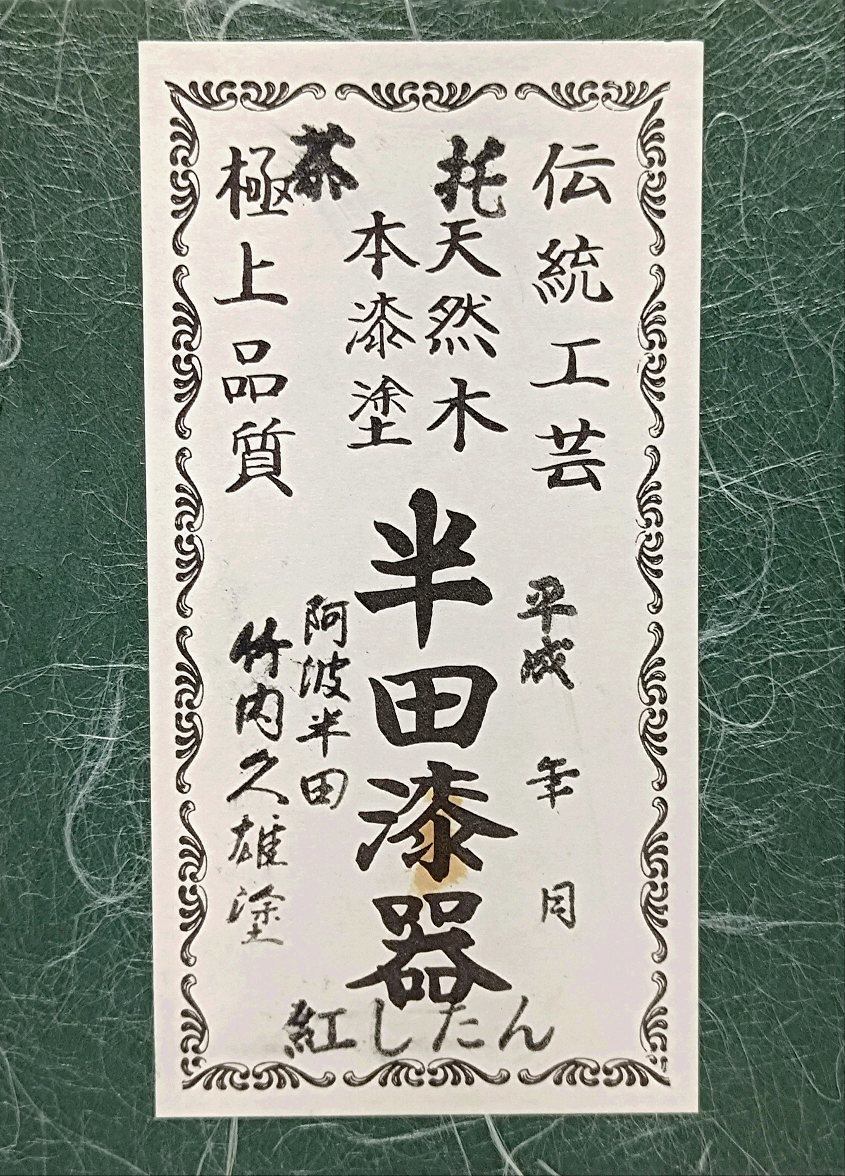 茶托
伝統工芸
天然木
本漆塗
極上品質
半田漆器
平成 年 月
阿波半田
竹内久雄塗
紅したん